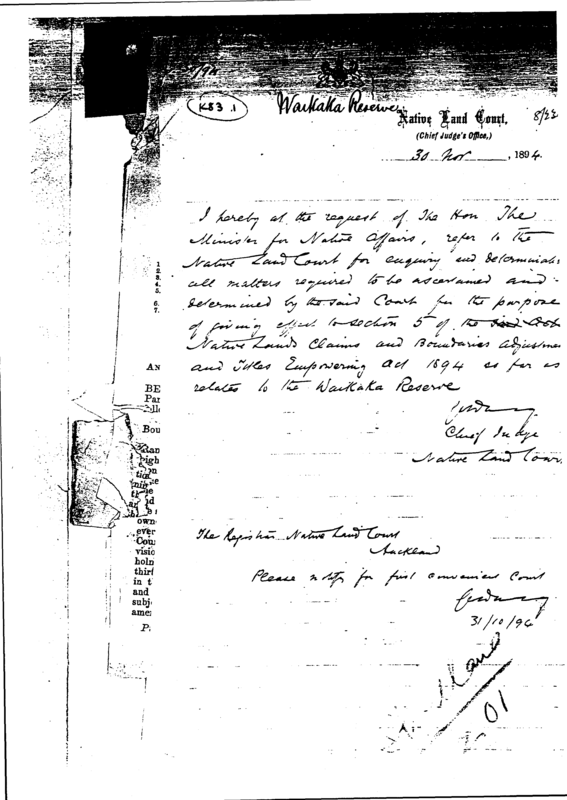 /94
K53.1
Waikaka Reserve
8/22
Native Land Court,
(Chief Judge's Office,)
30 Nov, 1894.
I hereby at the request of The Hon. The
Minister for Native Affairs, refer to the
Native Land Court for enquiry and
all matters required to be ascertained and
determined by the said Court for the purpose
of giving effect to section 5 of the
Native Lands Claims and Boundaries
and Titles Empowering Act 1894 so far as
relates to the Waikaka Reserve
Chief Judge
Native Land Court.
The Registrar Native Land Court
Auckland
Please notify for first convenient Court
31/10/94
01
1
2
3
4
5
6
7
AN
BE
Par
Bou
own
ever
Cou
visio
holn
thir
in t
and
subj
ame
P.